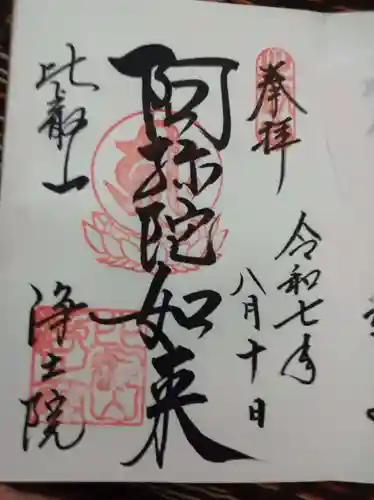 奉拝
令和七年
八月十日
阿弥陀如来
比叡山
浄土院